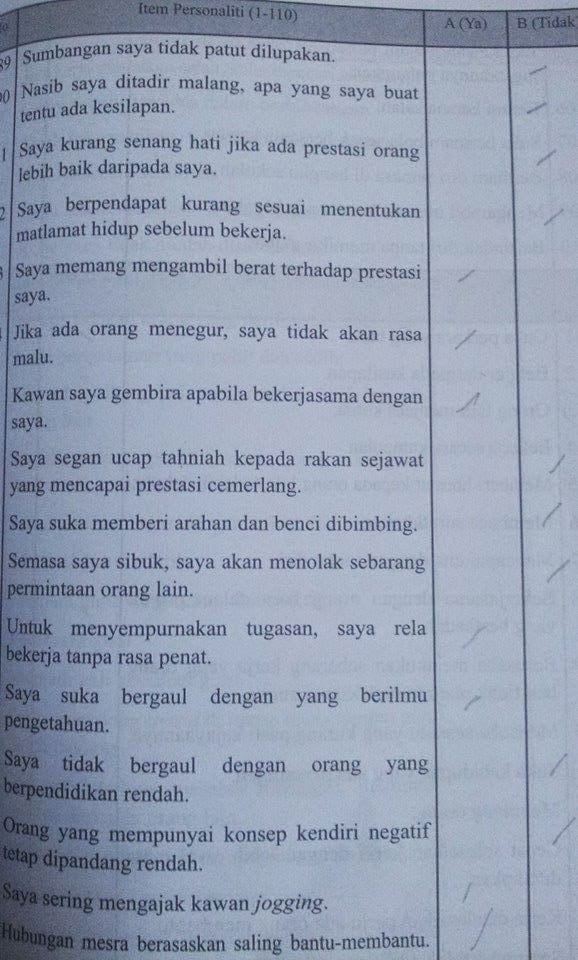 Item Personaliti (1-110)
A (Ya)
B (Tidak
89
Sumbangan saya tidak patut dilupakan.
Nasib saya ditadir malang, apa yang saya buat
tentu ada kesilapan.
Saya kurang senang hati jika ada prestasi orang
lebih baik daripada saya.
2
Saya berpendapat kurang sesuai menentukan
matlamat hidup sebelum bekerja.
Saya memang mengambil berat terhadap prestasi
saya.
Jika ada orang menegur, saya tidak akan rasa
malu.
Kawan saya gembira apabila bekerjasama dengan
saya.
Saya segan ucap tahniah kepada rakan sejawat
yang mencapai prestasi cemerlang.
Saya suka memberi arahan dan benci dibimbing.
Semasa saya sibuk, saya akan menolak sebarang
permintaan orang lain.
Untuk menyempurnakan tugasan, saya rela
bekerja tanpa rasa penat.
Saya suka bergaul dengan yang berilmu
pengetahuan.
Saya tidak bergaul dengan orang yang
berpendidikan rendah.
Orang yang mempunyai konsep kendiri negatif
tetap dipandang rendah.
Saya sering mengajak kawan jogging.
Hubungan mesra berasaskan saling bantu-membantu.